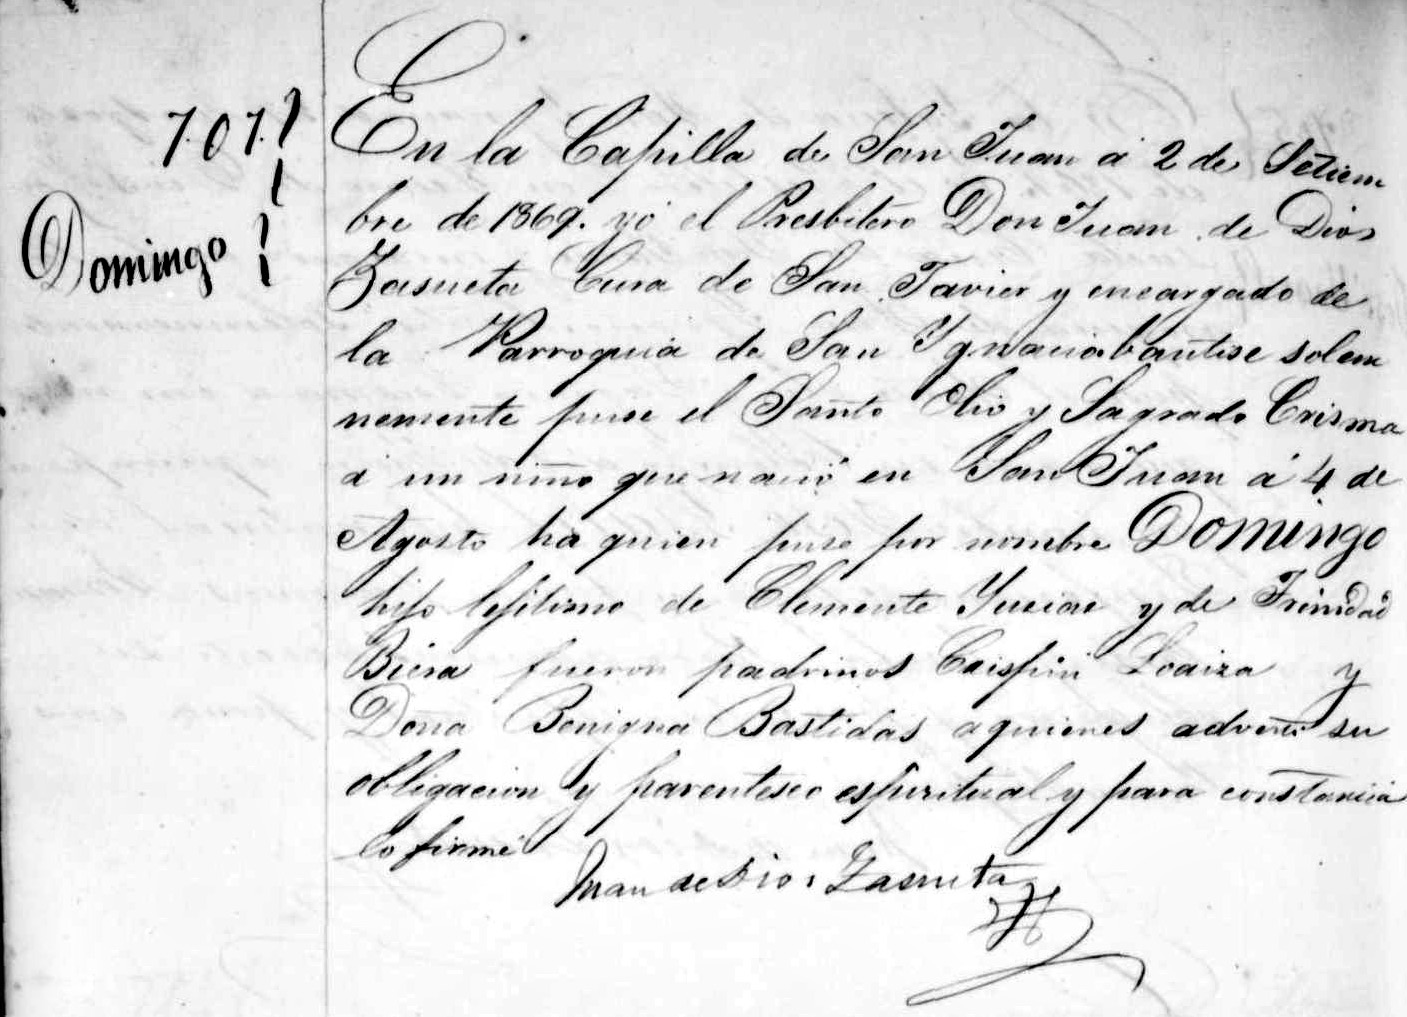 707
Domingo
En la Capilla de San Juan á 2 de Setiem
bre de 1869. yó el Presbitero Don Juan de Dios
Zasueta Cura de San Javier y encargado de
la Parroquia de San Ygnacio bautise solem
nemente puse el Santo Olio y Sagrado Crisma
á un niño que nació en San Juan á 4 de
Agosto ha quien puse por nombre Domingo
hijo lejitimo de Clemente y de Trinidad
Biera fueron padrinos Crispin Loaiza y
Doña Benigna Bastidas aquienes adverti su
obligacion y parentesco espiritual y para constancia
lo firmé
Juan de Dios Zasueta